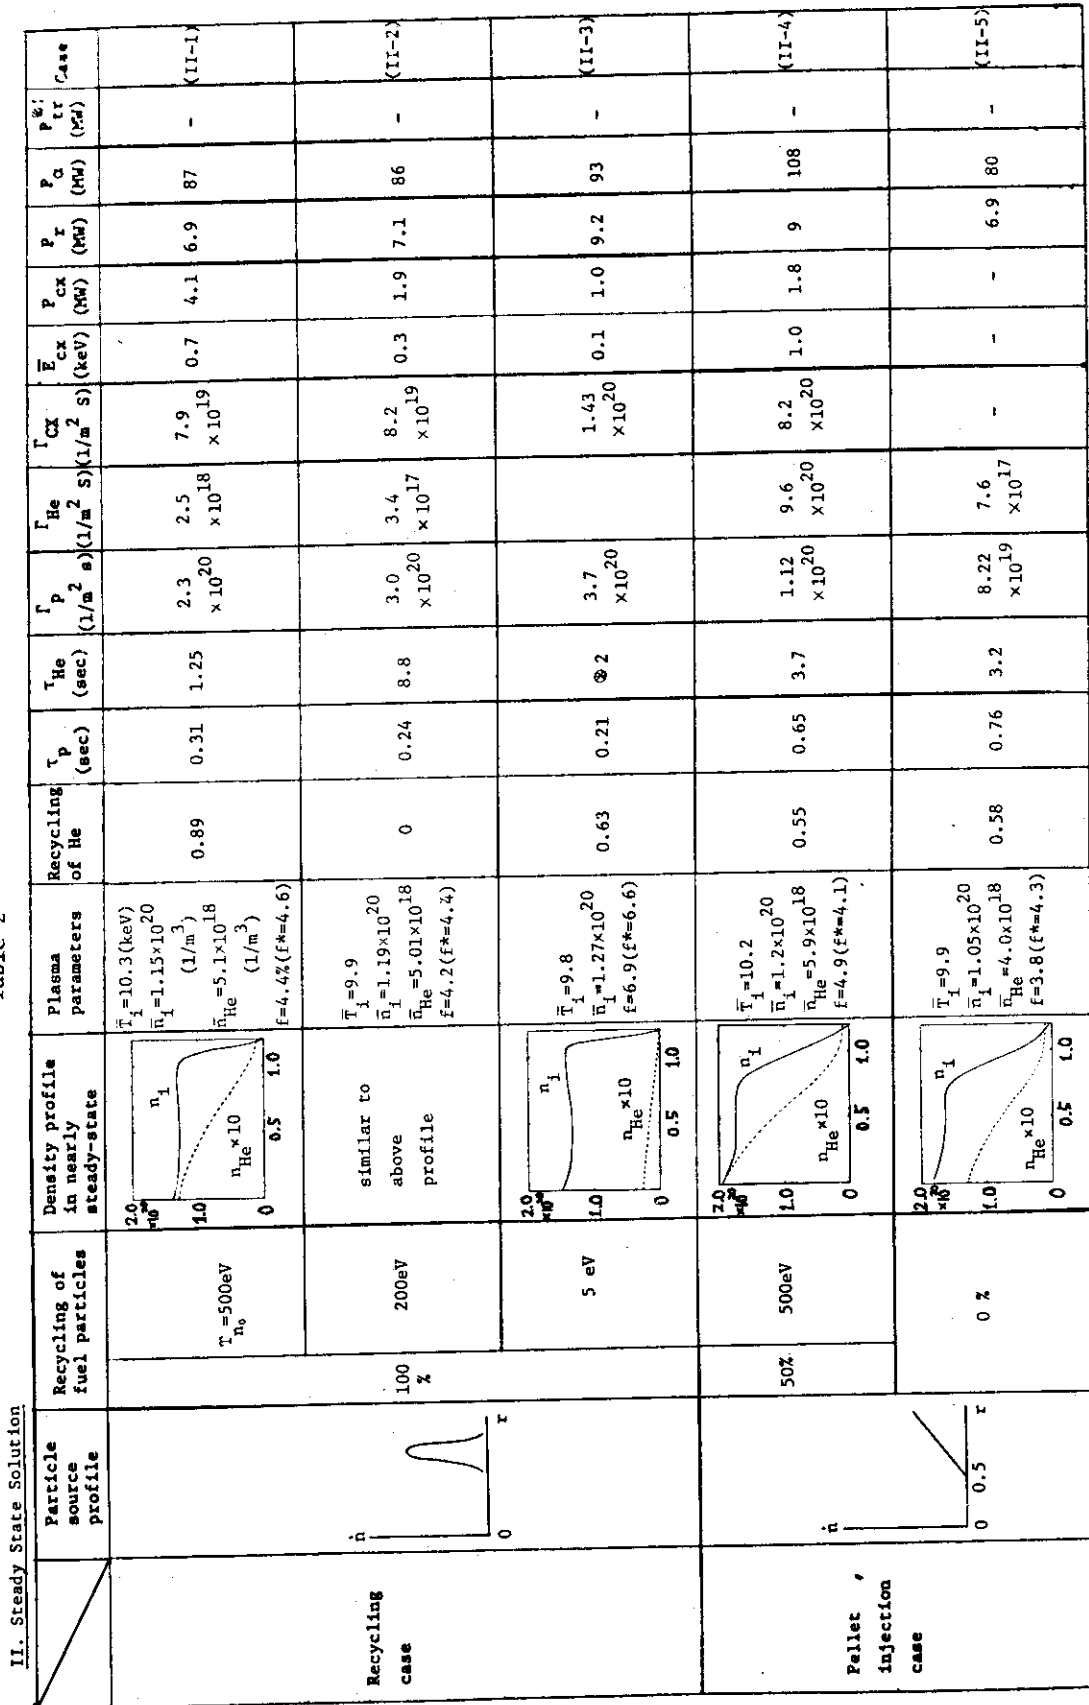 Table 2
II. Steady State Solution
Particle source profile
Recycling of fuel particles
Density profile in nearly steady-state
Plasma parameters
Recycling of He
τp (sec)
τHe (sec)
Γp (1/m² s)
ΓHe (1/m² S)
ΓCX (1/m² S)
E̅cx (keV)
Pcx (MW)
Pr (MW)
Pα (MW)
Case
Recycling case
ṅ
0
r
100 %
Tn₀=500eV
2.0 ×10²⁰
1.0
0
0.5
1.0
ni
nHe×10
T̅i=10.3(keV)
n̅i=1.15×10²⁰ (1/m³)
n̅He=5.1×10¹⁸ (1/m³)
f=4.4%(f*=4.6)
0.89
0.31
1.25
2.3 ×10²⁰
2.5 ×10¹⁸
7.9 ×10¹⁹
0.7
4.1
6.9
87
-
(II-1)
200eV
similar to above profile
T̅i=9.9
n̅i=1.19×10²⁰
n̅He=5.01×10¹⁸
f=4.2(f*=4.4)
0
0.24
8.8
3.0 ×10²⁰
3.4 ×10¹⁷
8.2 ×10¹⁹
0.3
1.9
7.1
86
-
(II-2)
5 eV
2.0 ×10²⁰
1.0
0
0.5
1.0
ni
nHe×10
T̅i=9.8
n̅i=1.27×10²⁰
f=6.9(f*=6.6)
0.63
0.21
2
3.7 ×10²⁰
1.43 ×10²⁰
0.1
1.0
9.2
93
-
(II-3)
Pellet injection case
ṅ
0
0.5
r
50%
500eV
2.0 ×10²⁰
1.0
0
0.5
1.0
ni
nHe×10
T̅i=10.2
n̅i=1.2×10²⁰
n̅He=5.9×10¹⁸
f=4.9(f*=4.1)
0.55
0.65
3.7
1.12 ×10²⁰
9.6 ×10²⁰
8.2 ×10²⁰
1.0
1.8
9
108
-
(II-4)
0 %
2.0 ×10²⁰
1.0
0
0.5
1.0
ni
nHe×10
T̅i=9.9
n̅i=1.05×10²⁰
n̅He=4.0×10¹⁸
f=3.8(f*=4.3)
0.58
0.76
3.2
8.22 ×10¹⁹
7.6 ×10¹⁷
-
-
-
6.9
80
-
(II-5)